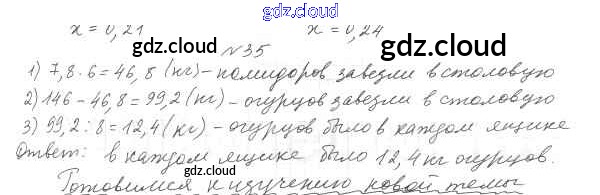 gdz.cloud
x = 0,21 x = 0,24
gdz.cloud gdz.cloud
№35
1) 7,8 · 6 = 46,8 (кг) – помидоров завезли в столовую
2) 146 – 46,8 = 99,2 (кг) – огурцов завезли в столовую
3) 99,2 : 8 = 12,4 (кг) – огурцов было в каждом ящике
Ответ: в каждом ящике было 12,4 кг огурцов.
gdz.cloud gdz.cloud
Готовимся к изучению новой темы